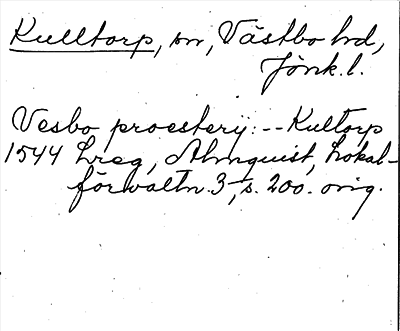 Kulltorp, sn, Västbo hd,
Jönk.l.
Vesbo proestery: -- Kultorp
1544 Lreg, Almquist, Lokal-
förvaltn. 3, s. 200. orig.